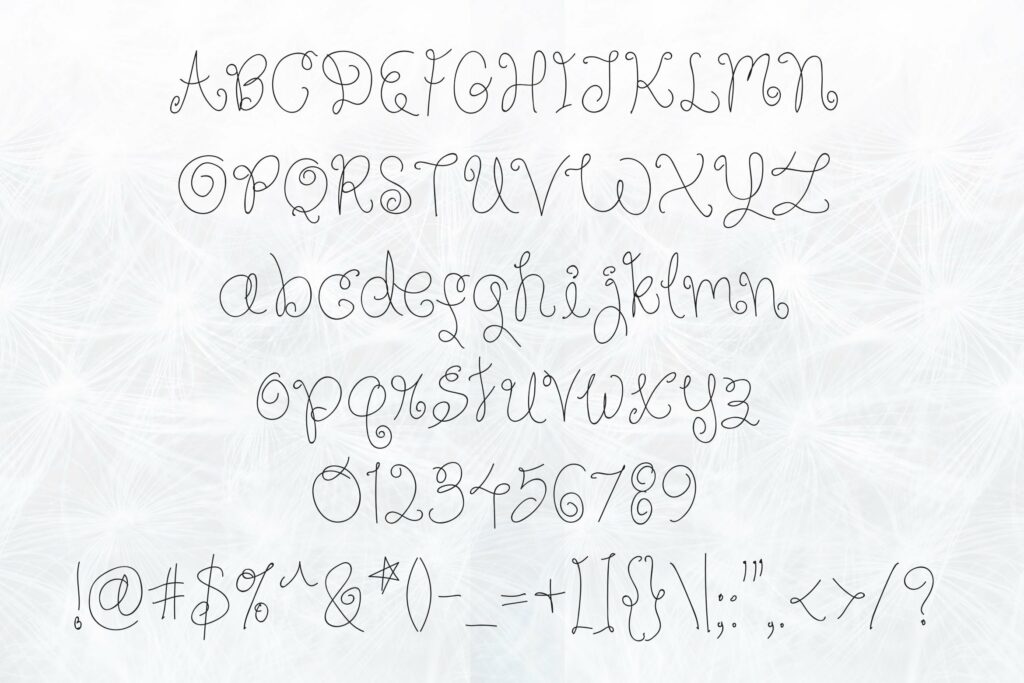 ABCDEFGHIJKLMN
OPQRSTUVWXYZ
abcdefghijklmn
opqrstuvwxyz
0123456789
!@#$%^&*()-_=+[]{}\|;:'",.<>/?